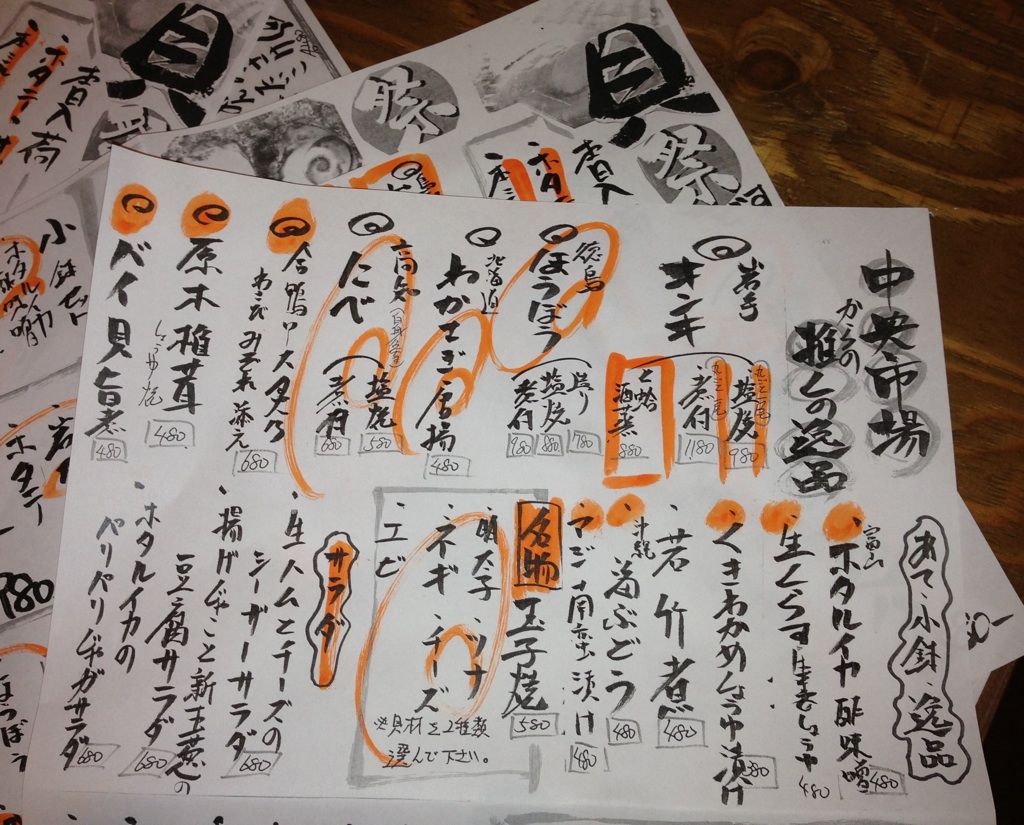 中央市場
からの
推しの逸品
岩手
キンキ
塩焼
980
煮付
1180
と蛤
酒蒸
880
徳島
ほうぼう
造り
780
塩焼
880
煮付
980
北海道
わかさぎ唐揚
480
高知
にべ
塩焼
580
煮付
600
合鴨ロースタタキ
わさびみぞれ添え
680
原木椎茸
しょうゆ焼
480
バイ貝旨煮
480
あて・小鉢・逸品
富山
・ホタルイカ酢味噌
480
・生くらげ生姜しょうゆ
480
・くきわかめしょうゆ漬け
380
・若竹煮
480
沖縄
・海ぶどう
480
・アゴ南蛮漬け
480
名物
玉子焼
580
・明太子・ツナ
・ネギ・チーズ
・エビ
※具材を2種類
選んで下さい。
サラダ
・生ハムとチーズの
シーザーサラダ
680
・揚げじゃこと新玉葱の
豆腐サラダ
680
・ホタルイカの
パリパリじゃがサラダ
680
貝
祭
貝
祭